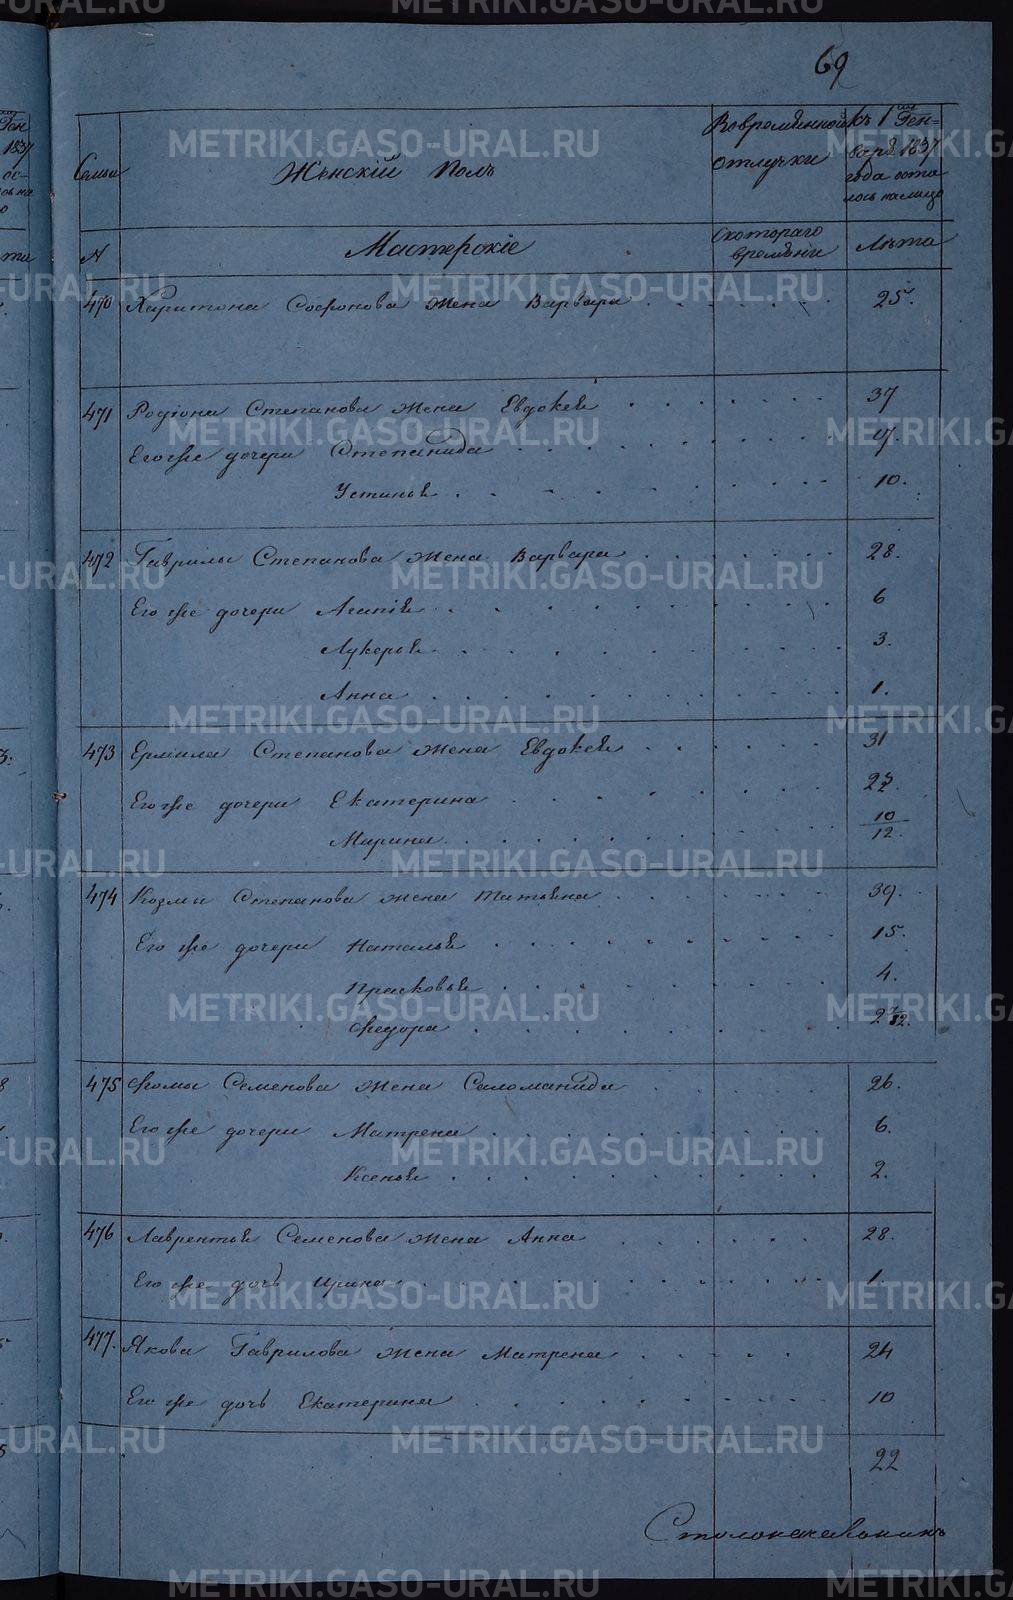 69
Семьи
Женскій полъ
Вовремѣнной отлучки
къ 1ᵐᵘ Генваря 1837 года оста лось налицо
N
Мастерскіе
Скотораго времѣни
Лѣта
470 Харитона Софронова жена Варвара 25.
471 Родіона Степанова жена Евдокея 37
Егоже дочери Степанида 17.
Устинья 10.
472 Гаврилы Степанова жена Варвара 28.
Его же дочери Агапія 6
Лукерья 3.
Анна 1.
473 Ермила Степанова жена Евдокея 31
Его же дочери Екатерина
Марина 10/12.
474 Козмы Степанова жена Татьяна 39.
Его же дочери Наталья 15.
Прасковья 4.
Федора
475 Фомы Семенова жена Саломанида 26.
Его же дочери Матрена 6.
Ксенья 2.
476 Лаврентья Семенова жена Анна 28.
Его же дочь Ирина 1.
477. Якова Гаврилова жена Матрена 24
Его же дочь Екатерина 10
22
Столоначальникъ
METRIKI.GASO-URAL.RU